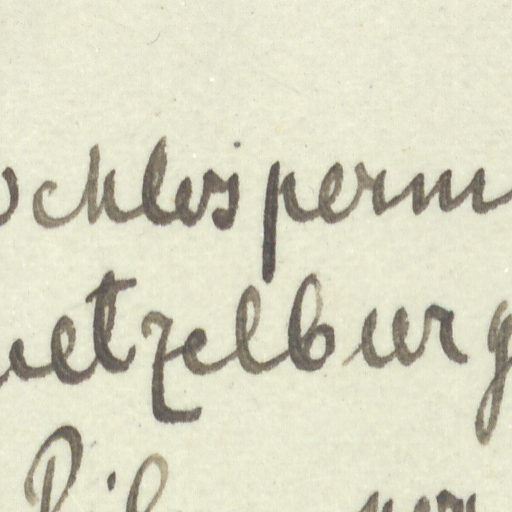 ochlosperm
uetzelburg